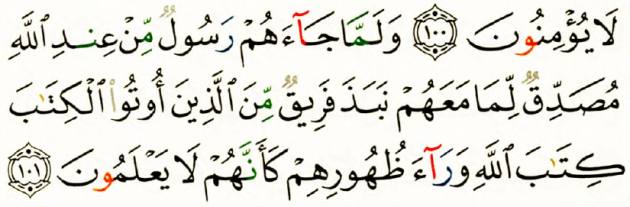 لَا يُؤْمِنُونَ ﴿١٠٠﴾ وَلَمَّا جَآءَهُمْ رَسُولٌ مِّنْ عِندِ ٱللَّهِ
مُصَدِّقٌ لِّمَا مَعَهُمْ نَبَذَ فَرِيقٌ مِّنَ ٱلَّذِينَ أُوتُوا۟ ٱلْكِتَٰبَ
كِتَٰبَ ٱللَّهِ وَرَآءَ ظُهُورِهِمْ كَأَنَّهُمْ لَا يَعْلَمُونَ ﴿١٠١﴾